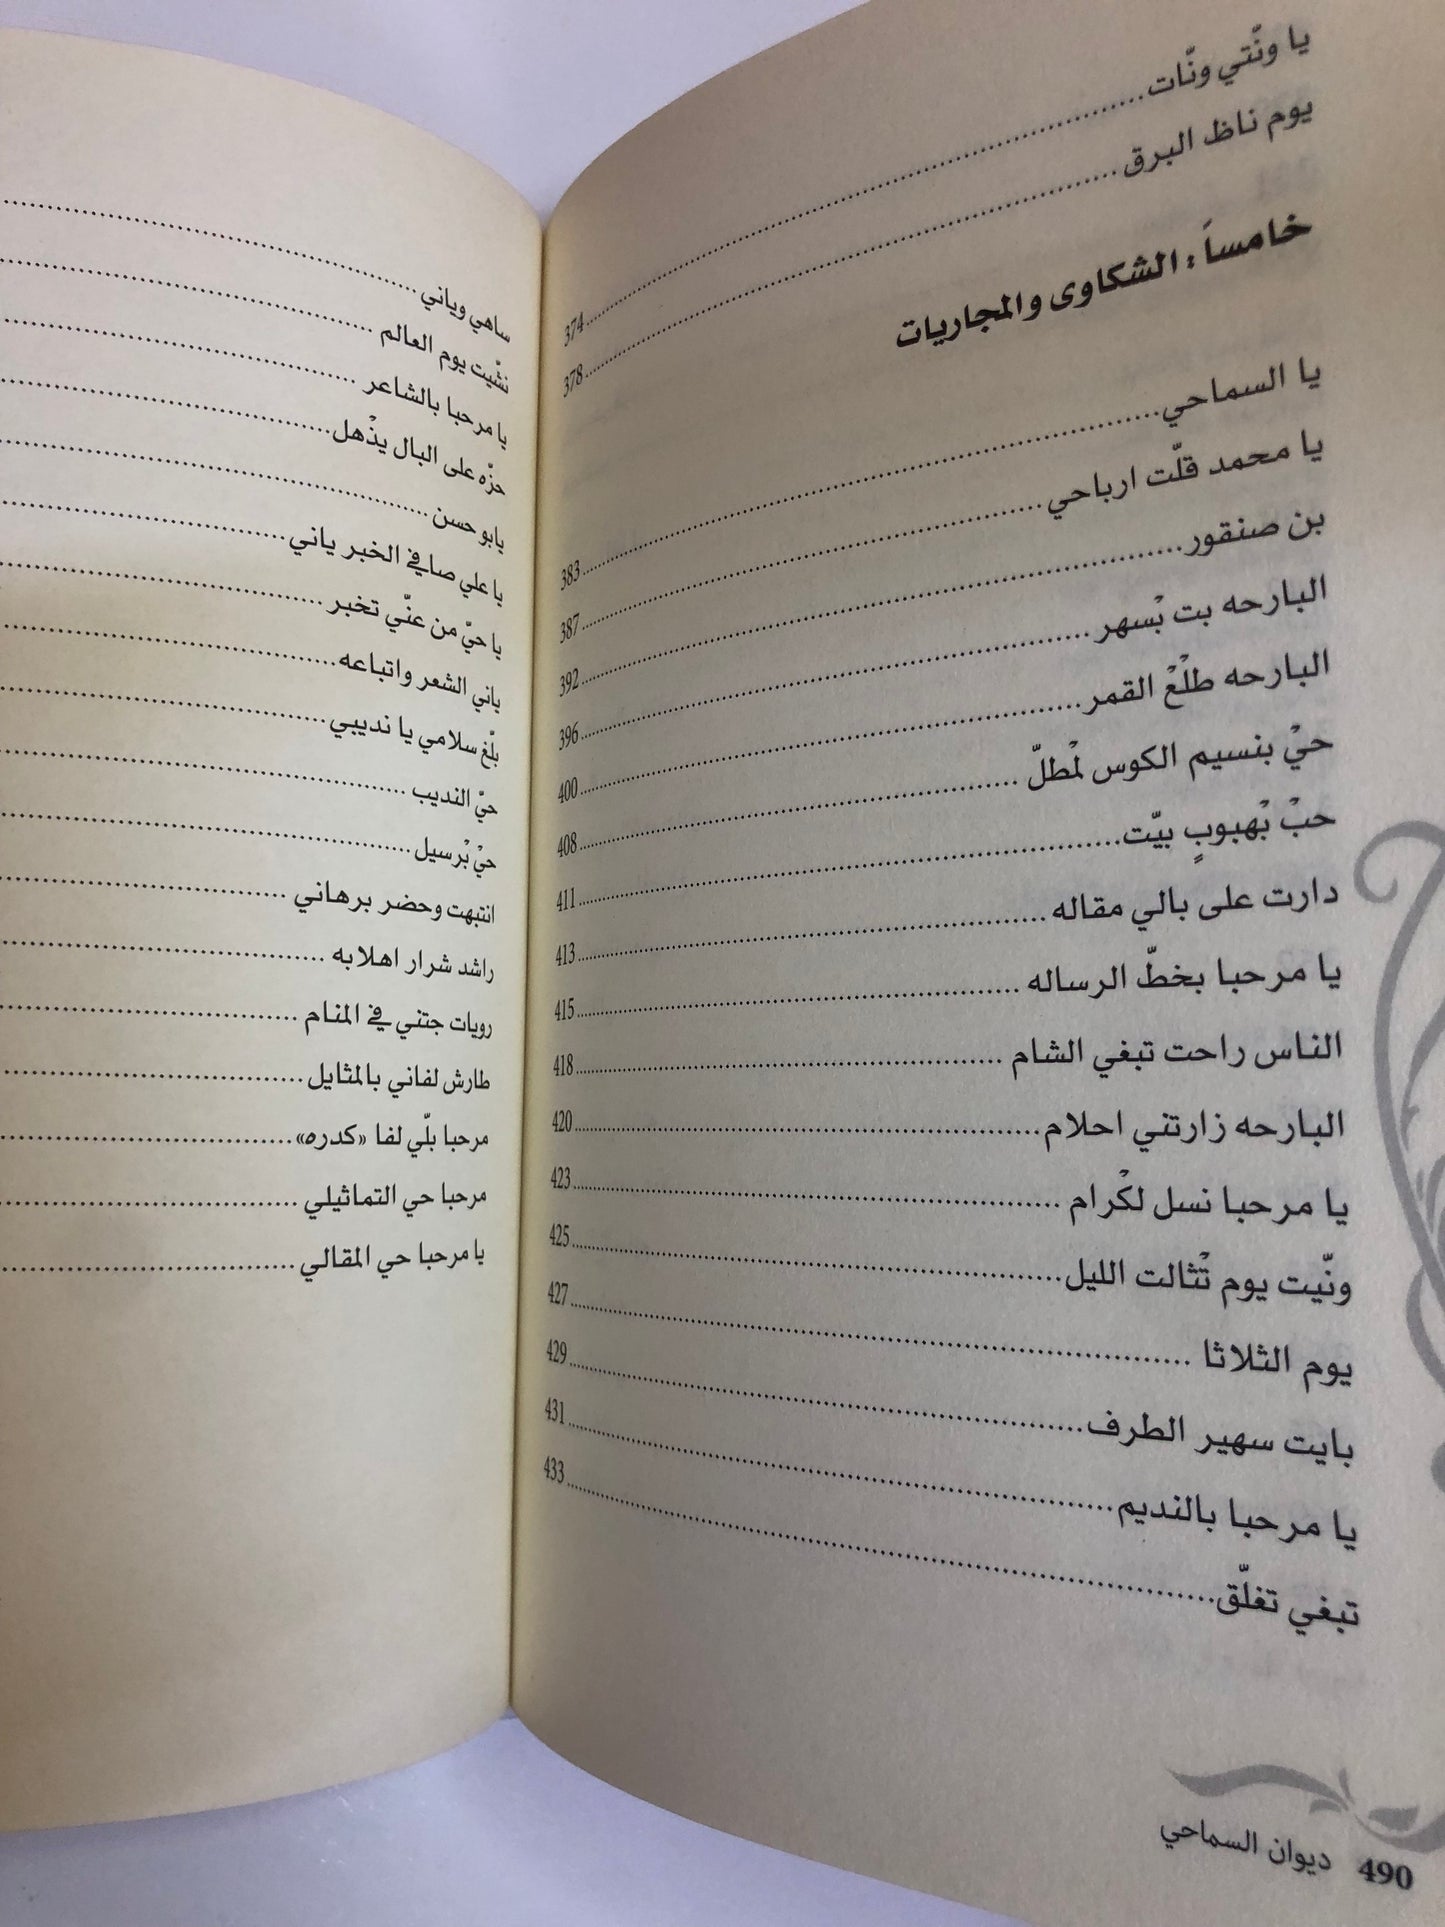 يا ونّتي ونّات ........ 374
يوم ناظ البرق ........ 378
خامساً: الشكاوى والمجاريات
يا السماحي ........ 383
يا محمد قلّت ارباحي ........ 387
بن صنقور ........ 392
البارحه بت بْسهر ........ 396
البارحه طلْعْ القمر ........ 400
حيْ بنسيم الكوس لْمطلّ ........ 408
حبْ بْهبوبٍ بيّت ........ 411
دارت على بالي مقاله ........ 413
يا مرحبا بخطّ الرساله ........ 415
الناس راحت تبغي الشام ........ 418
البارحه زارتني احلام ........ 420
يا مرحبا نسل لكْرام ........ 423
ونّيت يوم تْثالت الليل ........ 425
يوم الثلاثا ........ 427
بايت سهير الطرف ........ 429
يا مرحبا بالنديم ........ 431
تبغي تغلّق ........ 433
490 ديوان السماحي
ساهي وياني ........
نشّيت يوم العالم ........
يا مرحبا بالشاعر ........
حزّه على البال يذْهل ........
يابو حسن ........
يا علي صافي الخبر ياني ........
يا حيّ من عنّي تخبر ........
ياني الشعر واتباعه ........
بلّغ سلامي يا نديبي ........
حيّ النديب ........
حيْ بْرسيل ........
انتبهت وحضر برهاني ........
راشد شرار اهلا به ........
رويات جتني في المنام ........
طارش لفاني بالمثايل ........
مرحبا بلّي لفا «كدره» ........
مرحبا حي التماثيلي ........
يا مرحبا حي المقالي ........